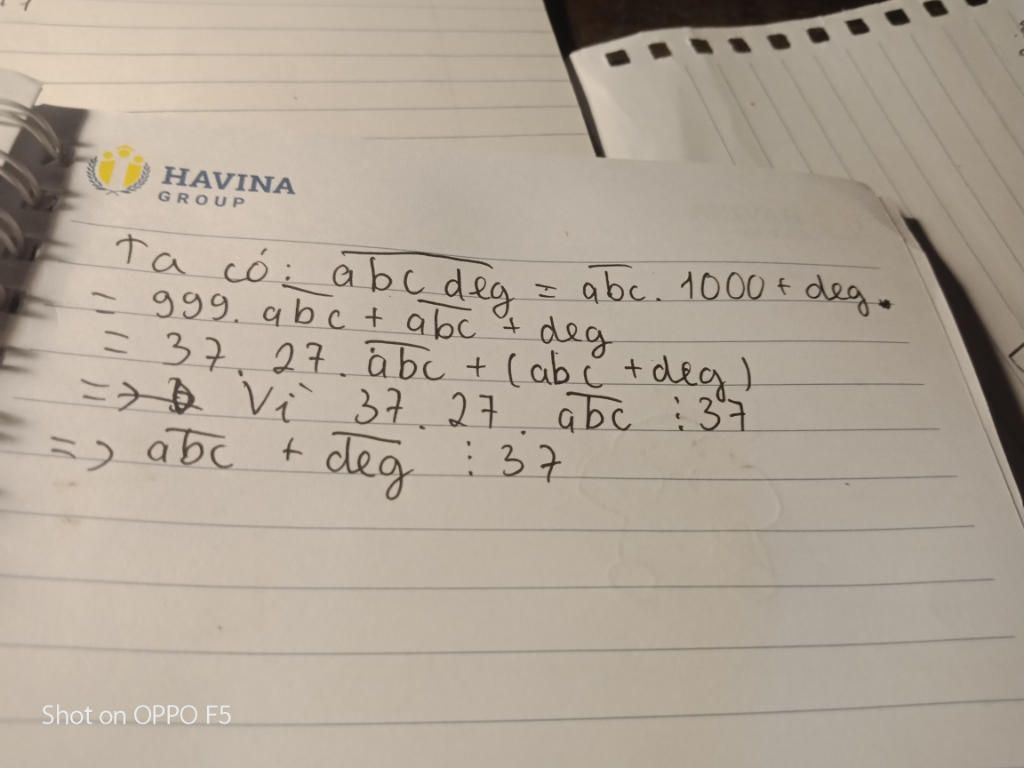 HAVINA
GROUP
Ta có: abc deg = abc. 1000 + deg.
= 999. abc + abc + deg
= 37. 27. abc + (abc + deg)
=> Vì 37. 27. abc ⋮ 37
=> abc + deg ⋮ 37
Shot on OPPO F5